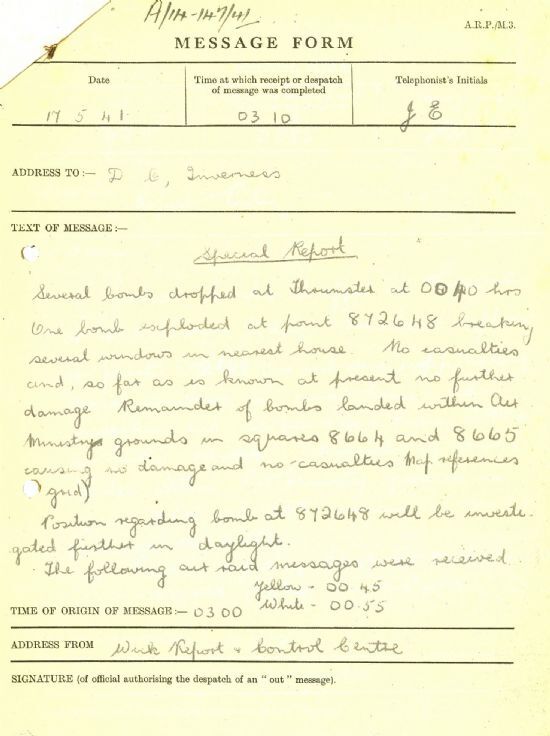 A/14-147/41
A.R.P./M.3.
MESSAGE FORM
Date
Time at which receipt or despatch
of message was completed
Telephonist's Initials
17 5 41
03 10
J E
ADDRESS TO:— D C, Inverness
TEXT OF MESSAGE:—
Special Report
Several bombs dropped at Thrumster at 0040 hrs
One bomb exploded at point 872648 breaking
several windows in nearest house. No casualties
and, so far as is known at present no further
damage Remainder of bombs landed within Air
Ministry grounds in squares 8664 and 8665
causing no damage and no casualties Map references
grid)
Position regarding bomb at 872648 will be investi-
gated further in daylight.
The following air raid messages were received.
Yellow - 00 45
White - 00.55
TIME OF ORIGIN OF MESSAGE:— 03 00
ADDRESS FROM Wick Report & Control Centre
SIGNATURE (of official authorising the despatch of an "out" message).